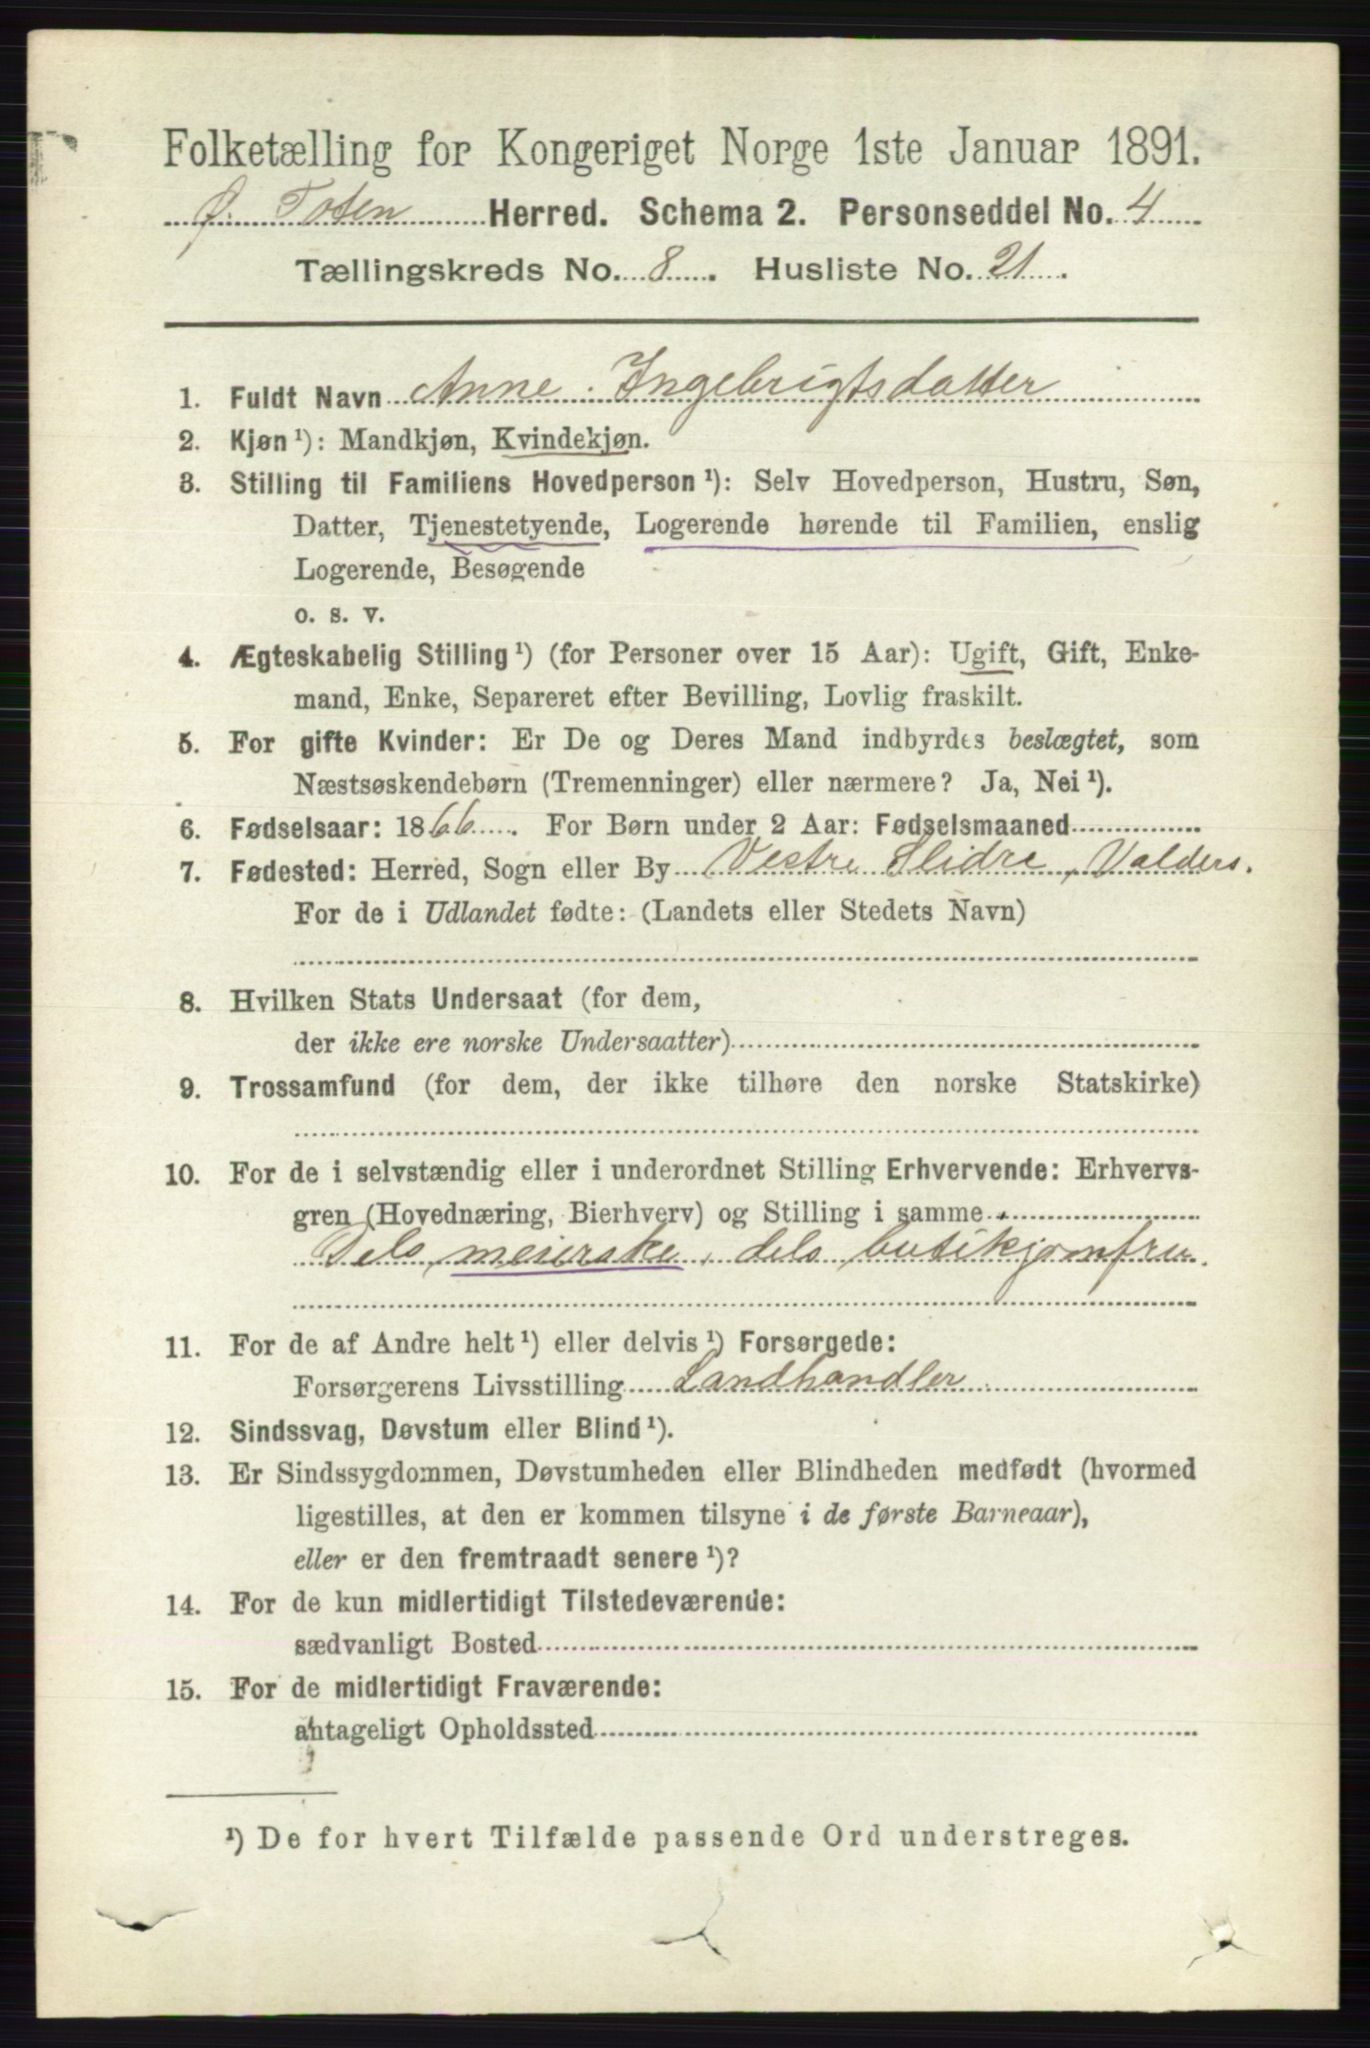 Folketælling for Kongeriget Norge 1ste Januar 1891.
Ø. Toten Herred. Schema 2. Personseddel No. 4
Tællingskreds No. 8. Husliste No. 21.
1. Fuldt Navn Anne Ingebrigtsdatter
2. Kjøn ¹): Mandkjøn, Kvindekjøn.
3. Stilling til Familiens Hovedperson ¹): Selv Hovedperson, Hustru, Søn,
Datter, Tjenestetyende, Logerende hørende til Familien, enslig
Logerende, Besøgende
o. s. v.
4. Ægteskabelig Stilling ¹) (for Personer over 15 Aar): Ugift, Gift, Enke-
mand, Enke, Separeret efter Bevilling, Lovlig fraskilt.
5. For gifte Kvinder: Er De og Deres Mand indbyrdes beslægtet, som
Næstsøskendebørn (Tremenninger) eller nærmere? Ja, Nei ¹).
6. Fødselsaar: 1866. For Børn under 2 Aar: Fødselsmaaned
7. Fødested: Herred, Sogn eller By Vestre Slidre, Valders.
For de i Udlandet fødte: (Landets eller Stedets Navn)
8. Hvilken Stats Undersaat (for dem,
der ikke ere norske Undersaatter)
9. Trossamfund (for dem, der ikke tilhøre den norske Statskirke)
10. For de i selvstændig eller i underordnet Stilling Erhvervende: Erhvervs-
gren (Hovednæring, Bierhverv) og Stilling i samme
Dels meierske, dels butikjomfru.
11. For de af Andre helt ¹) eller delvis ¹) Forsørgede:
Forsørgerens Livsstilling Landhandler
12. Sindssvag, Døvstum eller Blind ¹).
13. Er Sindssygdommen, Døvstumheden eller Blindheden medfødt (hvormed
ligestilles, at den er kommen tilsyne i de første Barneaar),
eller er den fremtraadt senere ¹)?
14. For de kun midlertidigt Tilstedeværende:
sædvanligt Bosted
15. For de midlertidigt Fraværende:
antageligt Opholdssted
¹) De for hvert Tilfælde passende Ord understreges.